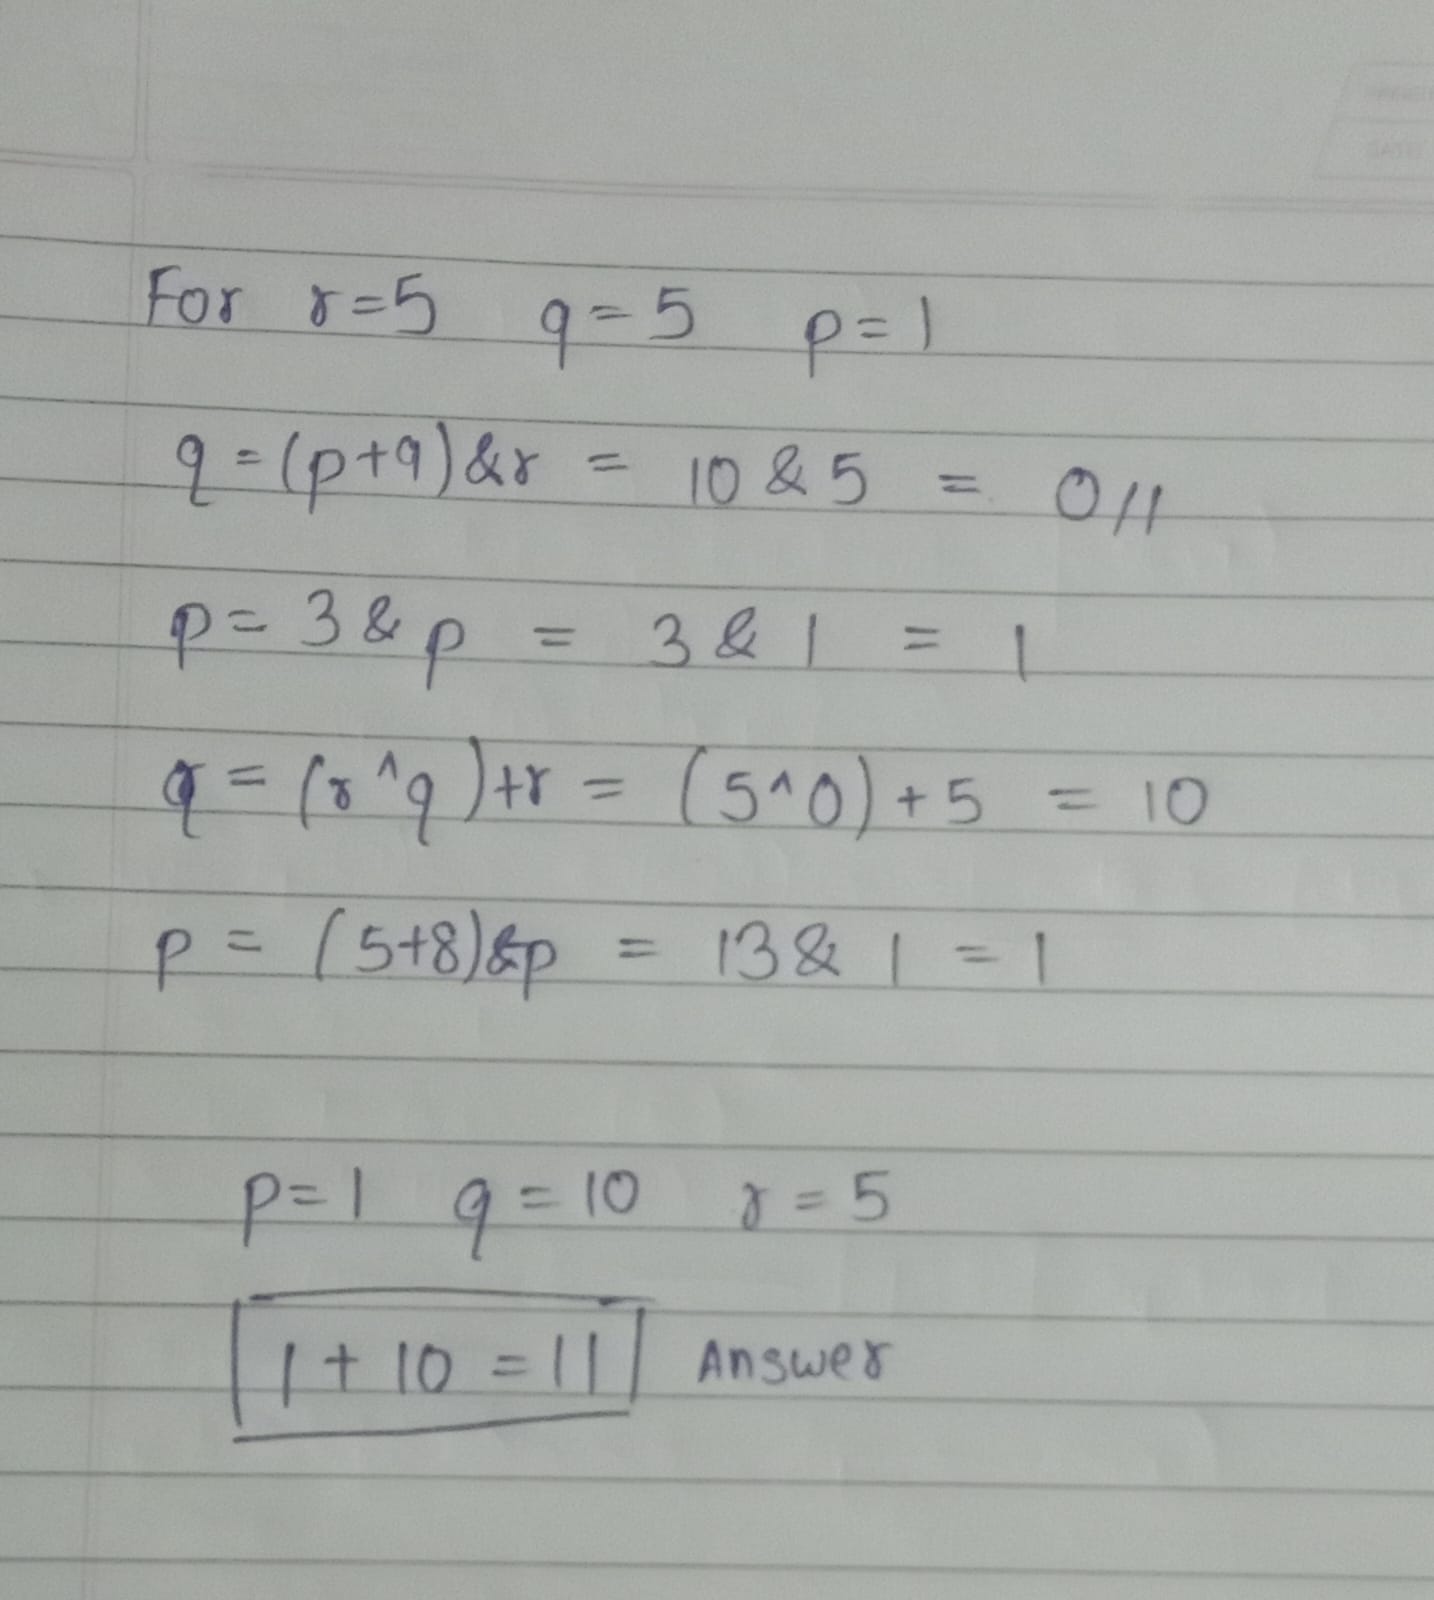 For r=5 q=5 p=1
q=(p+q)&r = 10 & 5 = 0//
p= 3 & p = 3 & 1 = 1
q = (r^q)+r = (5^0)+5 = 10
p = (5+8)&p = 13 & 1 = 1
p=1 q=10 r=5
1+10=11 Answer